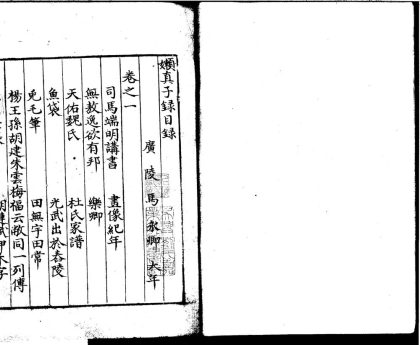 嬾真子録目録
廣陵馬永卿大年
卷之一
司馬端明講書 畫像紀年
無教逸欲有邦 樂卿
天佑魏氏 杜氏家譜
魚袋 光武出於舂陵
兎毛筆 田無宇田常
楊王孫胡建朱雲梅福云敞同一列傳